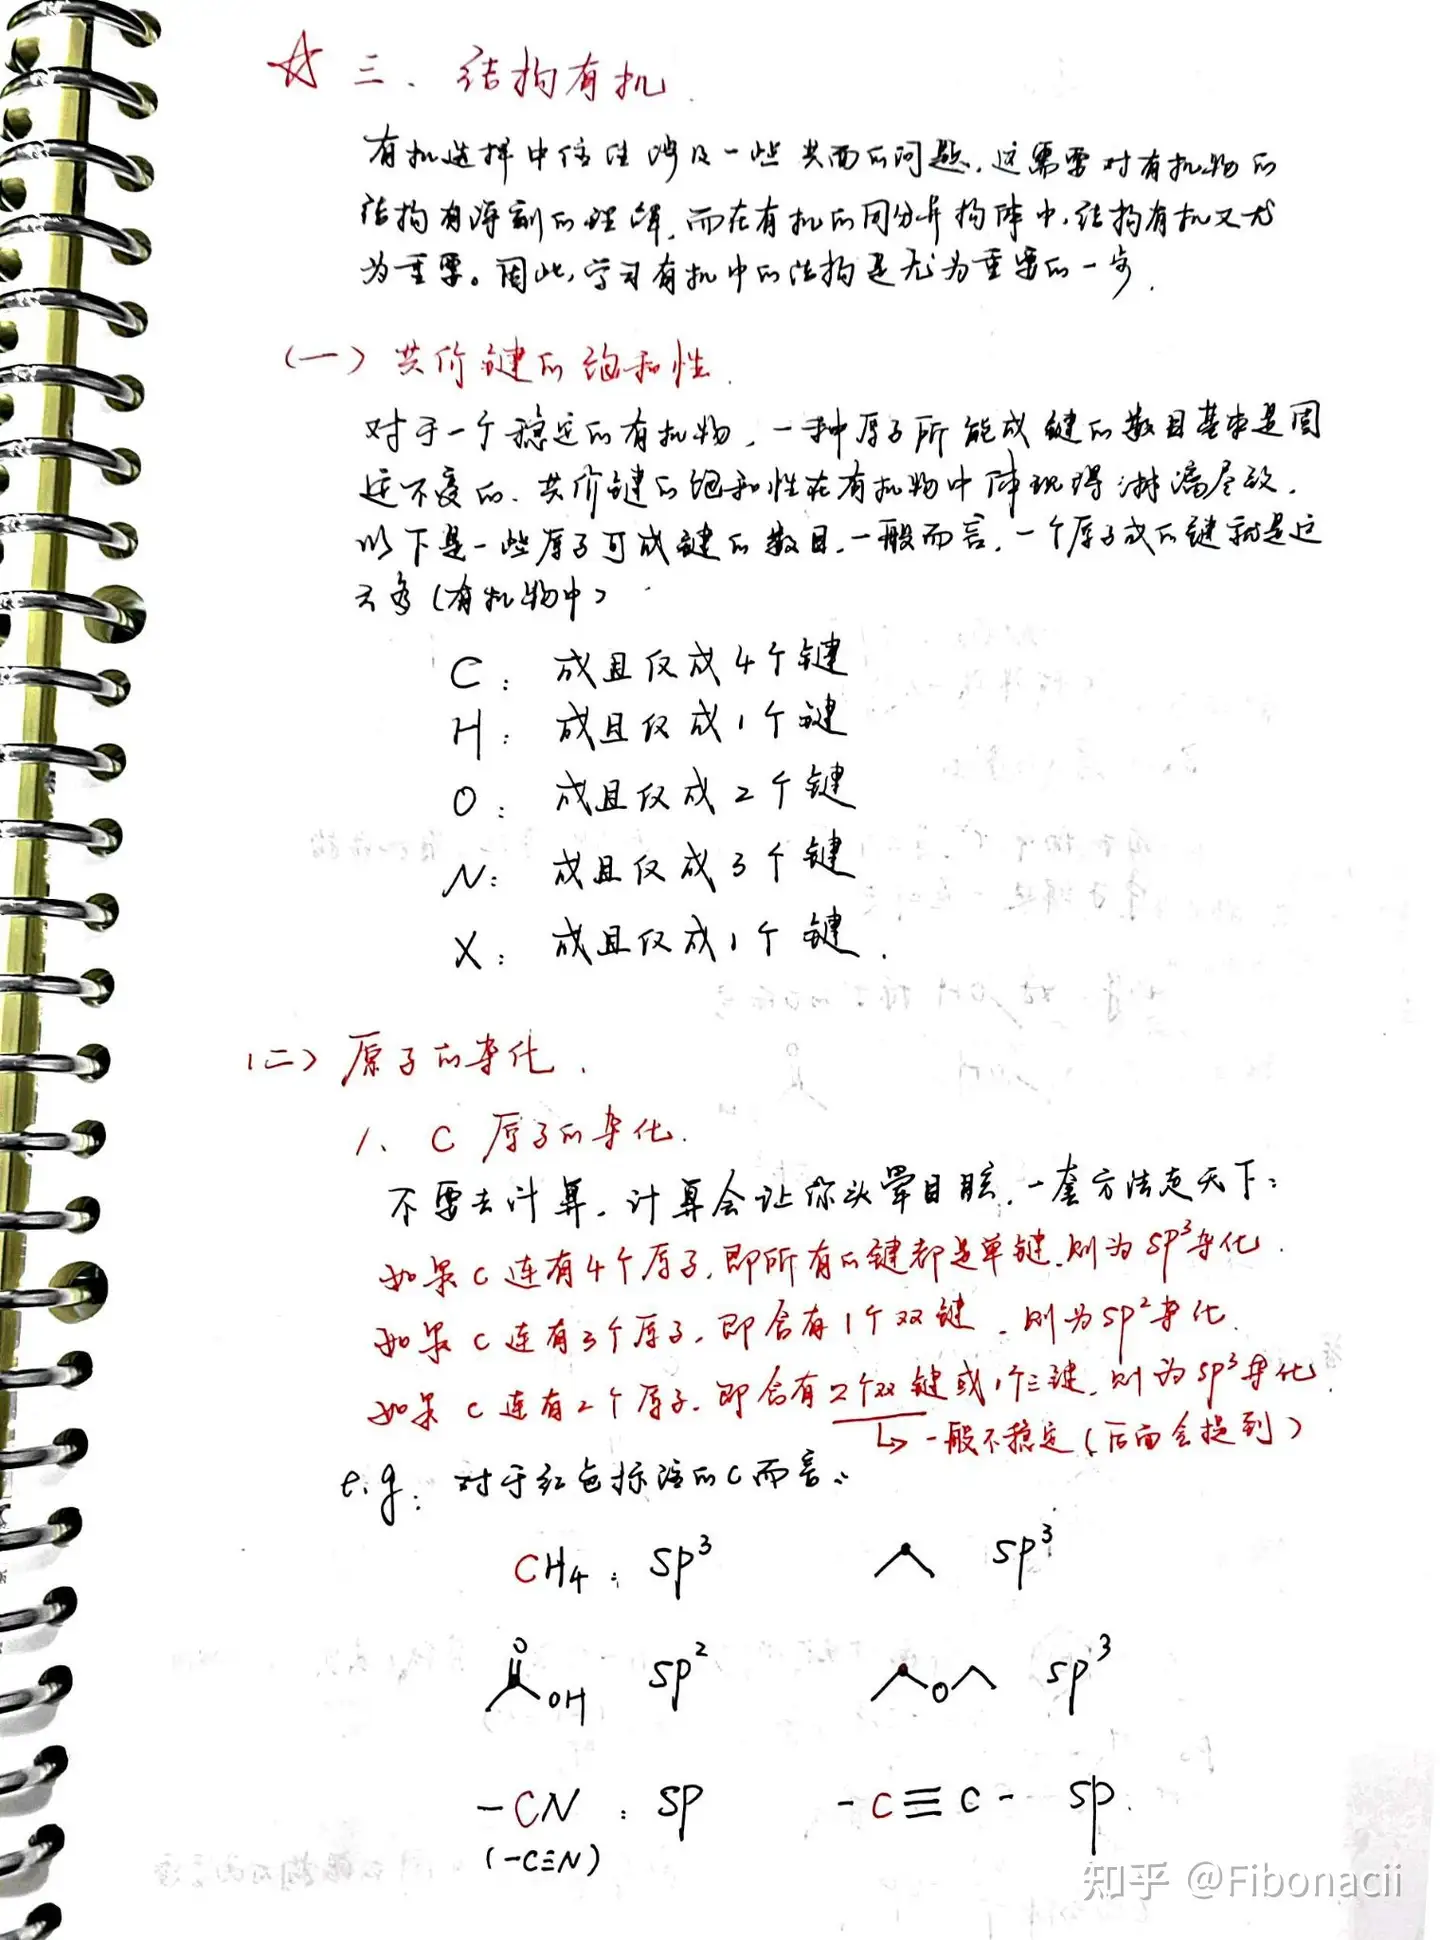 ☆ 三、结构有机.
有机选择中往往涉及一些共面的问题,这需要对有机物的
结构有深刻的理解,而在有机的同分异构体中,结构有机又尤
为重要。因此,学习有机中的结构是尤为重要的一步.
(一) 共价键的饱和性.
对于一个稳定的有机物,一种原子所能成键的数目基本是固
定不变的.共价键的饱和性在有机物中体现得淋漓尽致.
以下是一些原子可成键的数目,一般而言,一个原子成的键就是这
么多(有机物中).
C: 成且仅成4个键
H: 成且仅成1个键
O: 成且仅成2个键
N: 成且仅成3个键
X: 成且仅成1个键.
(二) 原子的杂化.
1、C 原子的杂化.
不要去计算,计算会让你头晕目眩,一套方法走天下:
如果C连有4个原子,即所有的键都是单键,则为sp³杂化.
如果C连有3个原子,即含有1个双键,则为sp²杂化.
如果C连有2个原子,即含有2个双键或1个三键,则为sp³杂化
↳ 一般不稳定(后面会提到)
e.g: 对于红色标注的C而言:
CH₄: sp³ sp³
O OH sp² O sp³
-CN: sp -C≡C- sp.
(-C≡N)
知乎 @Fibonacii